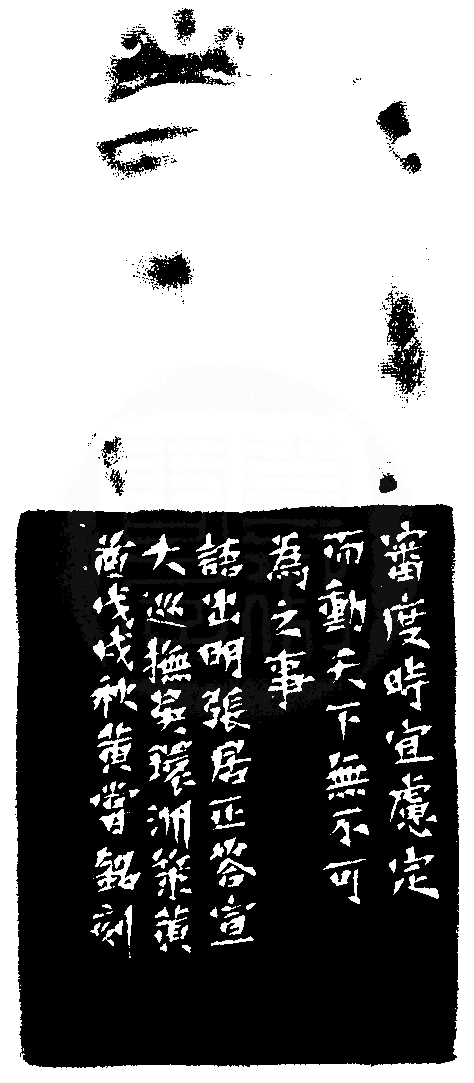 審度時宜慮定
而動天下無不可
為之事
語出明張居正答宣
大巡撫吳環洲策黃
酋戊戌秋黃嘗銘刻